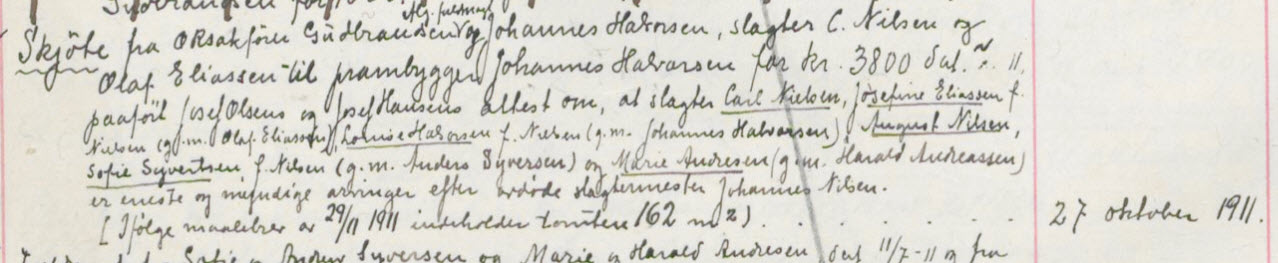 Skjöte fra O.R.sakfører Gudbrandsen og Johannes Halvorsen, slagter C. Nilsen og
Olaf Eliassen til prambygger Johannes Halvorsen for kr. 3800 dat. 11.
paaført Josef Olsens og Josef Hansens attest om, at slagter Carl Nielsen, Josefine Eliassen f.
Nielsen (g.m. Olaf Eliassen), Louise Halvorsen f. Nielsen (g.m. Johannes Halvorsen), August Nilsen,
Sofie Syvertsen f. Nilsen (g.m. Anders Syversen) og Marie Andresen (g.m. Harald Andreassen)
er eneste og myndige arvinger efter avdøde slagtermester Johannes Nilsen.
[Ifølge maalebrev av 29/11 1911 indeholder tomten 162 m2) . . . . . . 27 oktober 1911.
Sofie og Anders Syversen og Marie og Harald Andresen dat 11/7-11 og fra